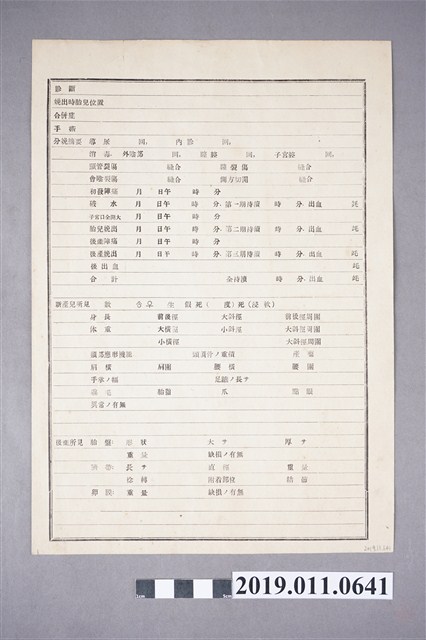 診斷
娩出時胎兒位置
合併症
手術
分娩摘要 導尿 回, 內診 回,
消毒 外陰部 回, 膣 回, 子宮 回,
頸管裂傷 縫合 膣裂傷 縫合
會陰裂傷 縫合 側方切開 縫合
初發陣痛 月 日午 時 分
破水 月 日午 時 分, 第一期持續 時 分, 出血 瓩
子宮口全開大 月 日午 時 分
胎兒娩出 月 日午 時 分, 第二期持續 時 分, 出血 瓩
後產陣痛 月 日午 時 分
後產娩出 月 日午 時 分, 第三期持續 時 分, 出血 瓩
後出血 瓩
合計 全持續 時 分, 出血 瓩
新產兒所見 數 ♁♀ 生 假死( 度)死(浸軟)
身長 前後徑 大斜徑 前後徑周圍
体重 大橫徑 小斜徑 大斜徑周圍
小橫徑 小斜徑周圍
頭蓋
肩橫 肩圍 腰橫 腰圍
手掌ノ幅 足蹠ノ長サ
胎脂 爪
異常ノ有無
後產所見 胎盤: 形狀 大サ 厚サ
重量 缺損ノ有無
臍帶: 長サ 直徑 重量
捻轉 附着部位 結節
卵膜: 重量 缺損ノ有無
2019.011.0641